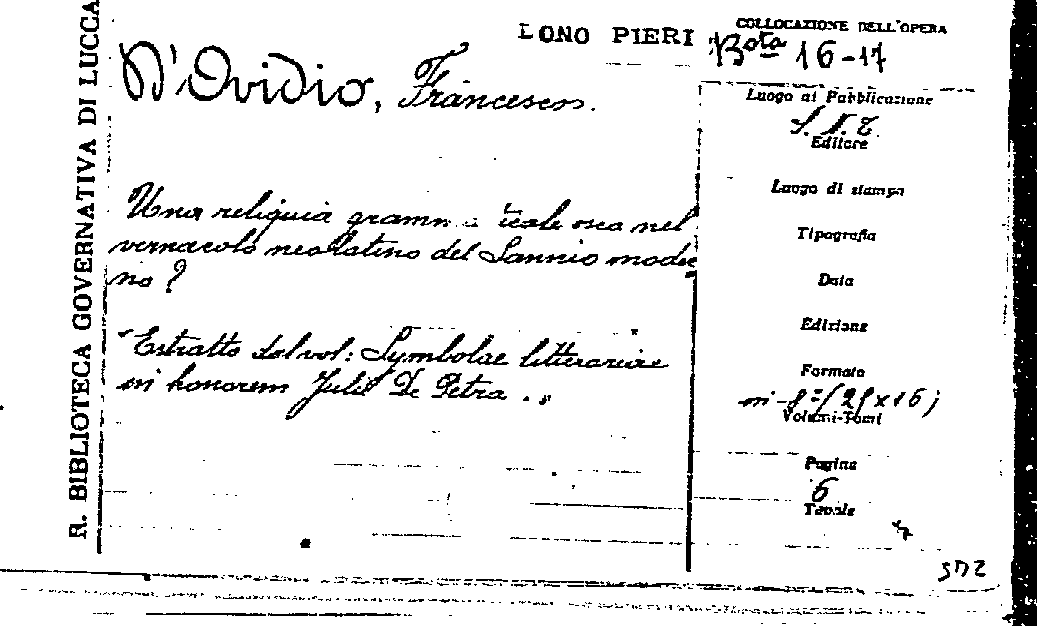 R. BIBLIOTECA GOVERNATIVA DI LUCCA
DONO PIERI
COLLOCAZIONE DELL'OPERA
Bta 16-17
D'Ovidio, Francesco.
Una reliquia grammaticale osca nel
vernacolo neolatino del Sannio moder
no?
Estratto dal vol: Symbolae litterariae
in honorem Julii De Petra
Luogo di Pubblicazione
S. N. T.
Editore
Luogo di stampa
Tipografia
Data
Edizione
Formato
in-8° (25x16)
Volumi-Tomi
Pagine
6
Tavole